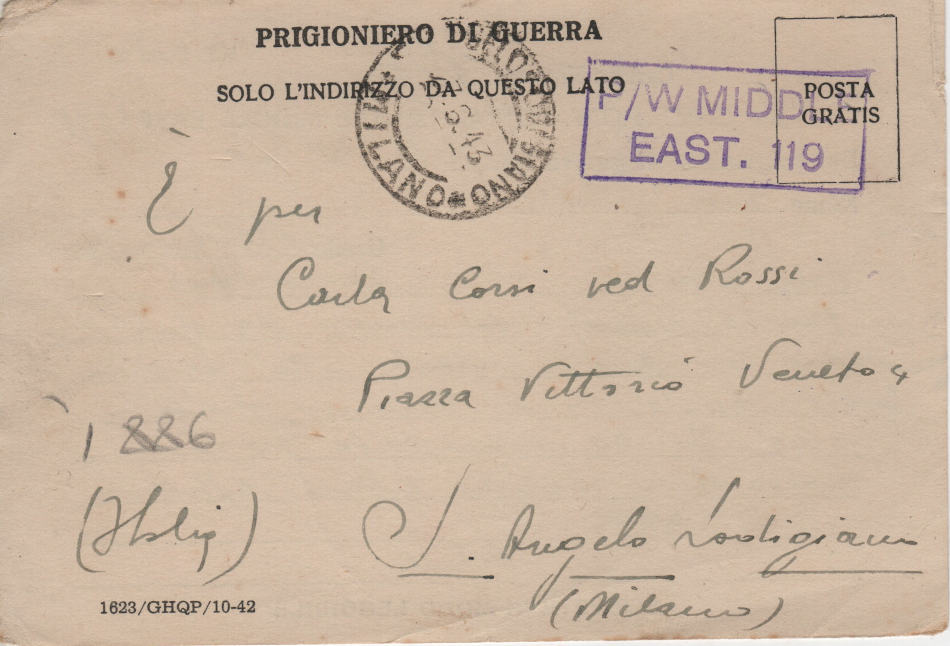 PRIGIONIERO DI GUERRA
SOLO L'INDIRIZZO DA QUESTO LATO
POSTA
GRATIS
P/W MIDDLE
EAST. 119
LODIGIANO * MILANO
43
È per
Carla Corsi ved Rossi
Piazza Vittorio Veneto 4
1886
(Italia)
S. Angelo Lodigiano
(Milano)
1623/GHQP/10-42